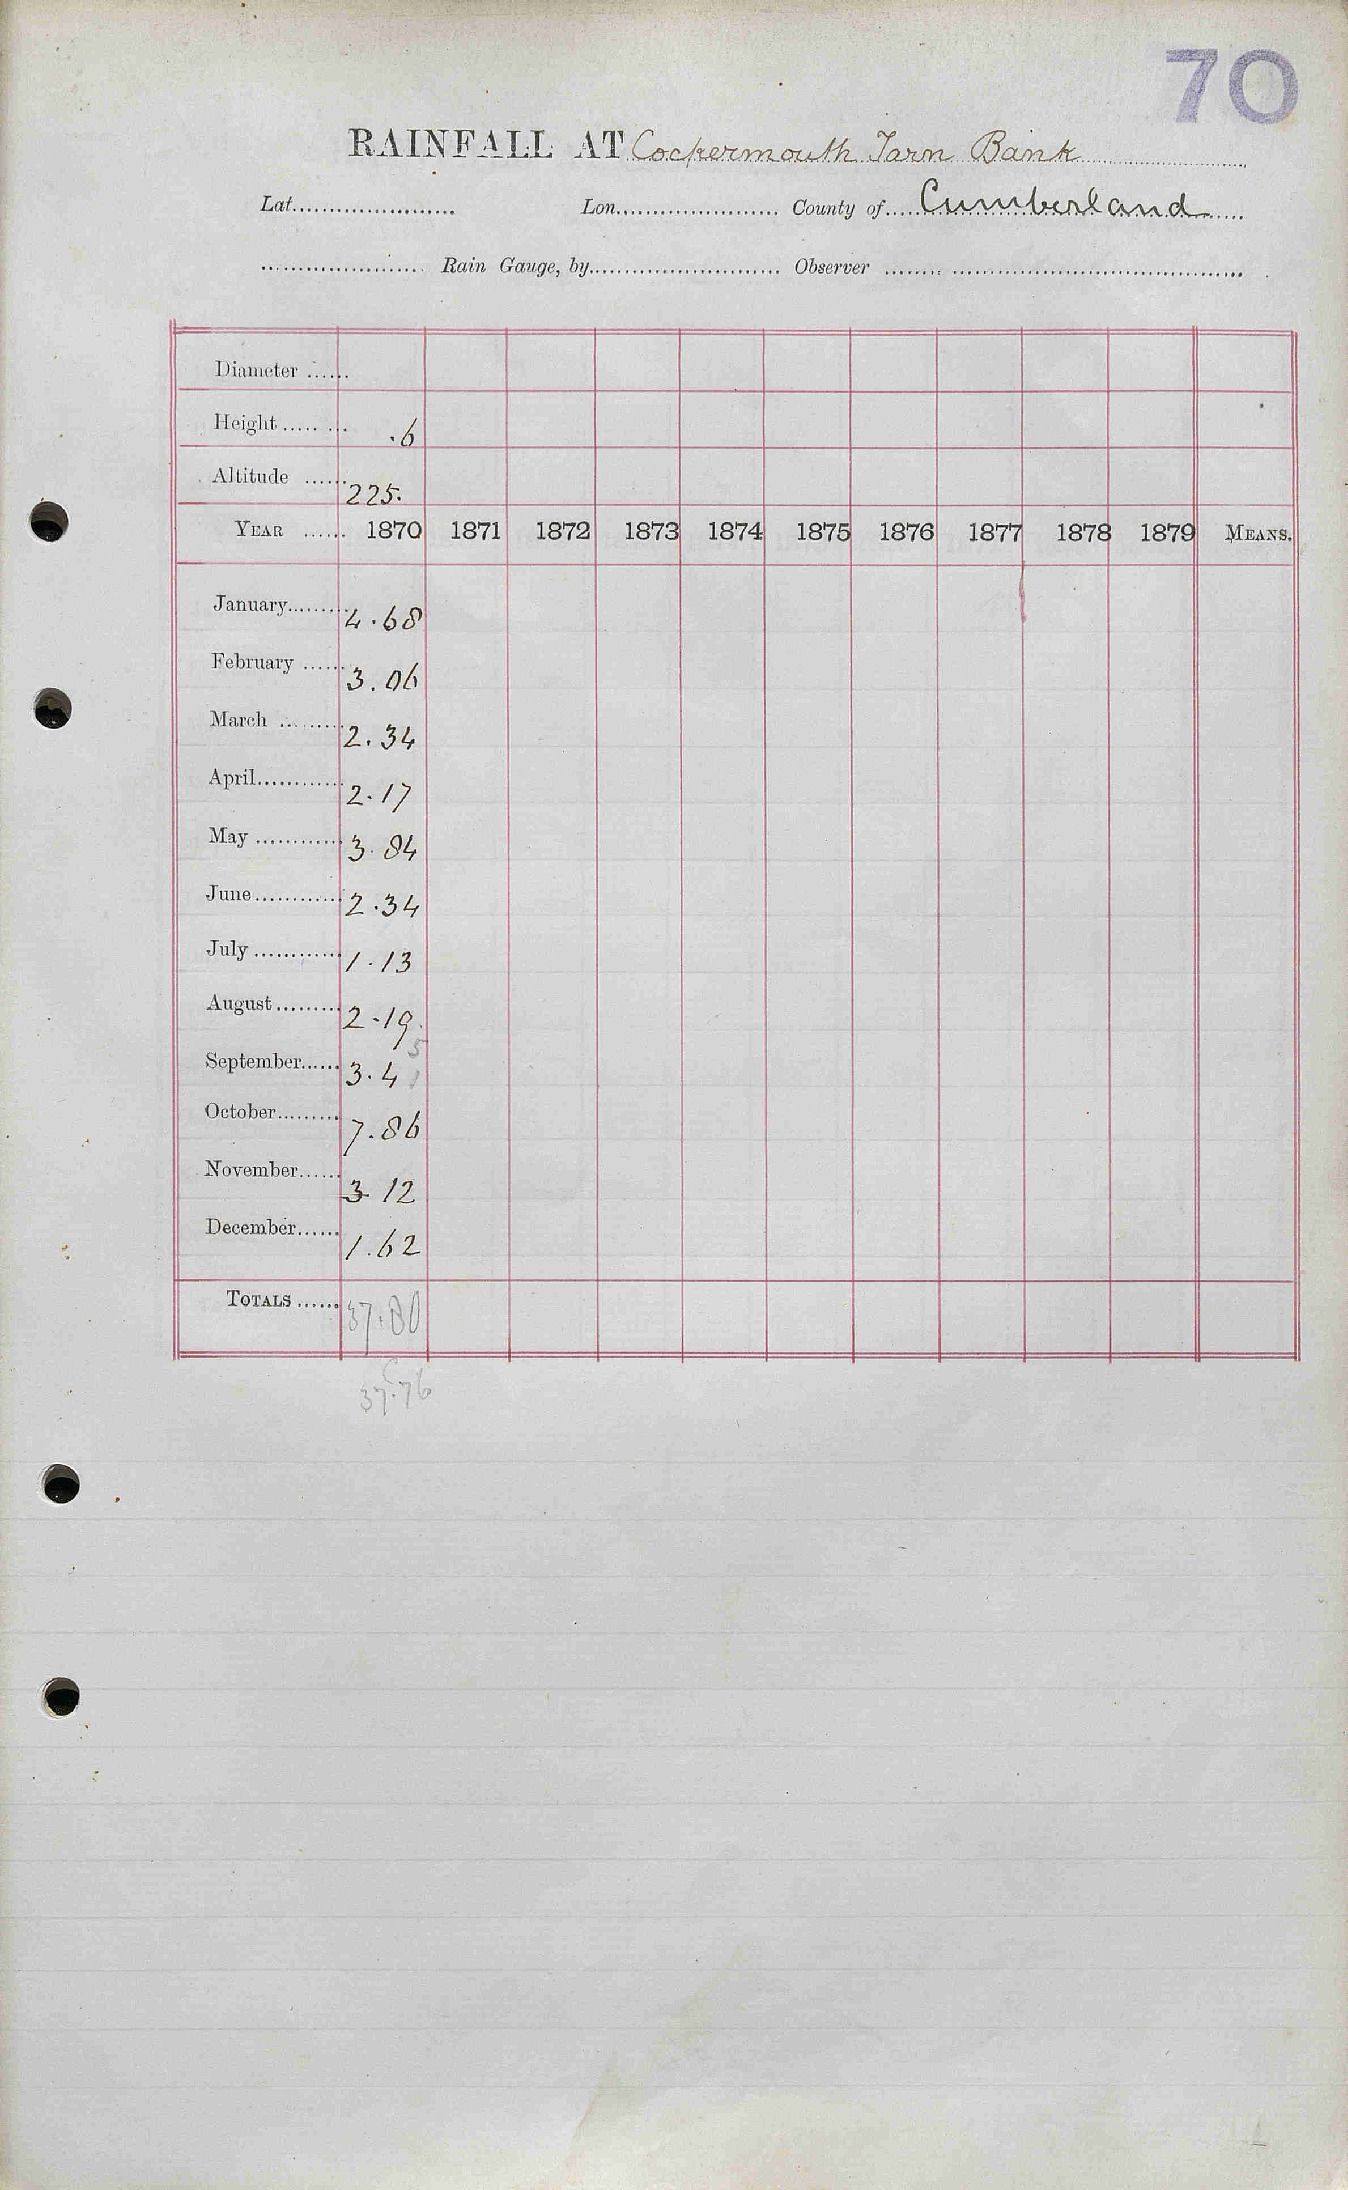 70
RAINFALL AT Cockermouth Tarn Bank
Lat. Lon. County of Cumberland
Rain Gauge, by Observer
Diameter
Height .6
Altitude 225.
YEAR 1870 1871 1872 1873 1874 1875 1876 1877 1878 1879 MEANS.
January 4.68
February 3.06
March 2.34
April 2.17
May 3.84
June 2.34
July 1.13
August 2.19
5
September 3.4 1
October 7.86
November 3 12
December 1.62
TOTALS 37.80
37.76